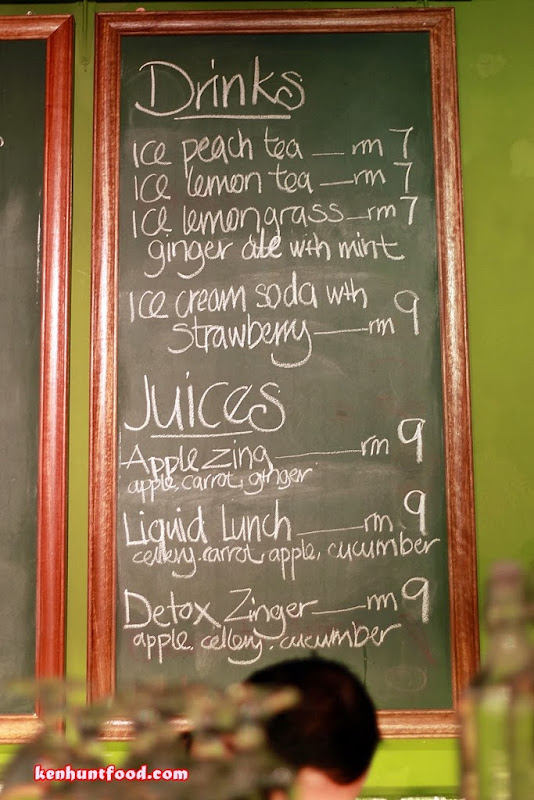 Drinks
ice peach tea — rm 7
ice lemon tea — rm 7
ice lemongrass — rm 7
ginger ale with mint
ice cream soda with 9
strawberry — rm
Juices
Apple Zing — rm 9
apple, carrot, ginger
Liquid Lunch — rm 9
cellery, carrot, apple, cucumber
Detox Zinger — rm 9
apple, cellery, cucumber
kenhuntfood.com